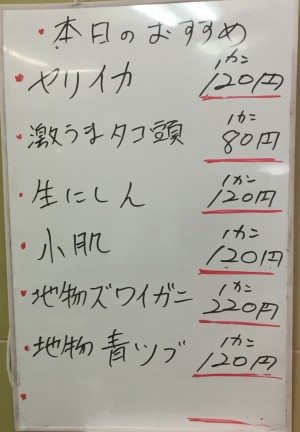 ・本日のおすすめ
・ヤリイカ 1カン 120円
・激うまタコ頭 1カン 80円
・生にしん 1カン 120円
・小肌 1カン 120円
・地物ズワイガニ 1カン 220円
・地物青ツブ 1カン 120円